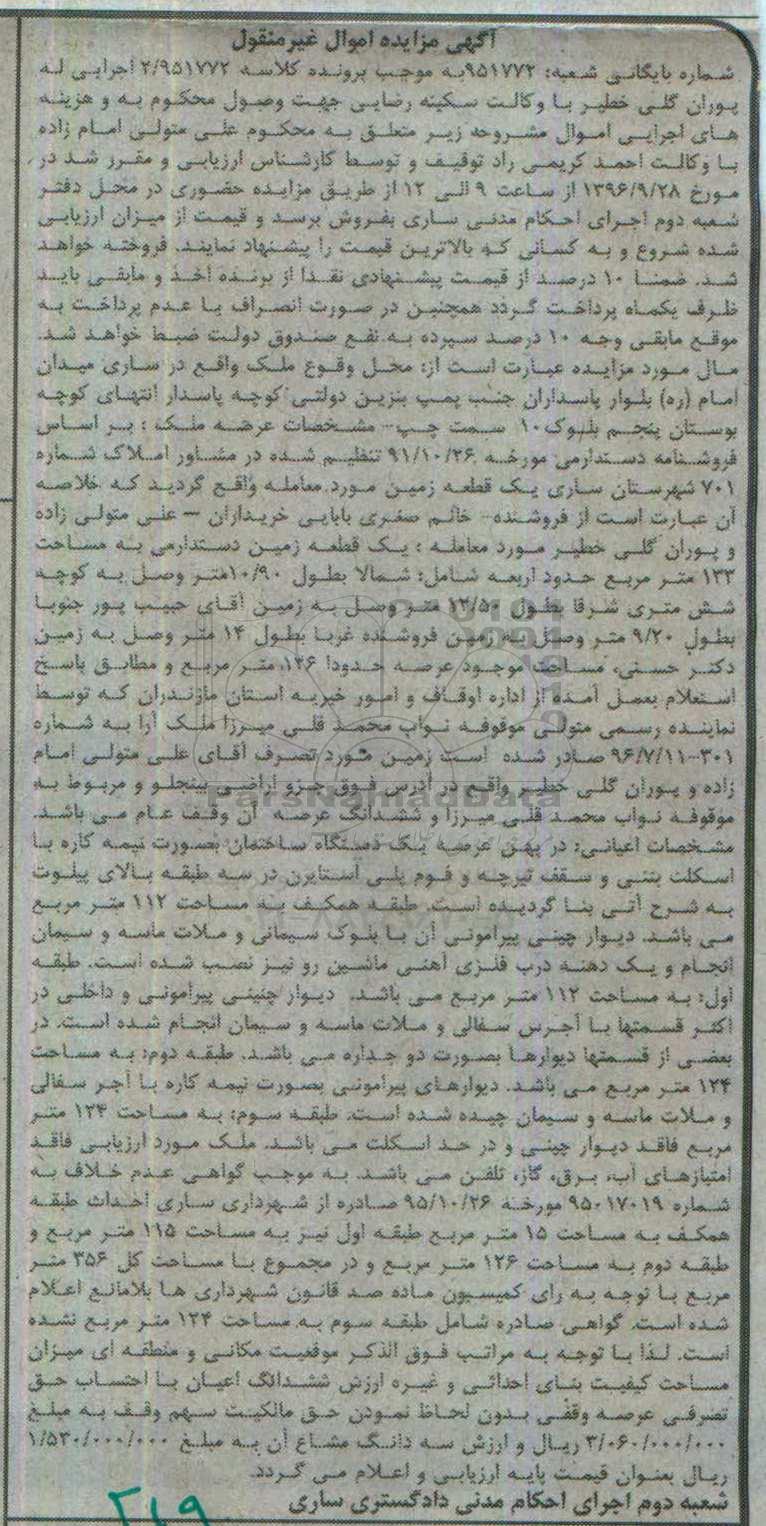 آگهی مزایده اموال غیرمنقول
شماره بایگانی شعبه: ۹۵۱۷۷۲به موجب پرونده کلاسه ۲/۹۵۱۷۷۲ اجرایی له
پوران گلی خطیر با وکالت سکینه رضایی جهت وصول محکوم به و هزینه
های اجرایی اموال مشروحه زیر متعلق به محکوم علی متولی امام زاده
با وکالت احمد کریمی راد توقیف و توسط کارشناس ارزیابی و مقرر شد در
مورخ ۱۳۹۶/۹/۲۸ از ساعت ۹ الی ۱۲ از طریق مزایده حضوری در محل دفتر
شعبه دوم اجرای احکام مدنی ساری بفروش برسد و قیمت از میزان ارزیابی
شده شروع و به کسانی که بالاترین قیمت را پیشنهاد نمایند. فروخته خواهد
شد. ضمنا ۱۰ درصد از قیمت پیشنهادی نقدا از برنده اخذ و مابقی باید
ظرف یکماه پرداخت گردد همچنین در صورت انصراف یا عدم پرداخت به
موقع مابقی وجه ۱۰ درصد سپرده به نفع صندوق دولت ضبط خواهد شد.
مال مورد مزایده عبارت است از: محل وقوع ملک واقع در ساری میدان
امام (ره) بلوار پاسداران جنب پمپ بنزین دولتی کوچه پاسدار انتهای کوچه
بوستان پنجم بلوک۱۰ سمت چپ-- مشخصات عرصه ملک : بر اساس
فروشنامه دستدارمی مورخه ۹۱/۱۰/۲۶ تنظیم شده در مشاور املاک شماره
۷۰۱ شهرستان ساری یک قطعه زمین مورد معامله واقع گردید که خلاصه
آن عبارت است از فروشنده-- خانم صغری بابایی خریداران – علی متولی زاده
و پوران گلی خطیر مورد معامله : یک قطعه زمین دستدارمی به مساحت
۱۳۳ متر مربع حدود اربعه شامل: شمالا بطول ۱۰/۹۰متر وصل به کوچه
شش متری شرقا بطول ۱۲/۵۰ متر وصل به زمین آقای حبیب پور جنوبا
بطول ۹/۲۰ متر وصل به زمین فروشنده غربا بطول ۱۴ متر وصل به زمین
دکتر حسنی، مساحت موجود عرصه حدودا ۱۲۶ متر مربع و مطابق پاسخ
استعلام بعمل آمده از اداره اوقاف و امور خیریه استان مازندران که توسط
نماینده رسمی متولی موقوفه نواب محمد قلی میرزا ملک آرا به شماره
۳۰۱--۹۶/۷/۱۱ صادر شده است زمین مورد تصرف آقای علی متولی امام
زاده و پوران گلی خطیر واقع در آدرس فوق جزو اراضی پنجلو و مربوط به
موقوفه نواب محمد قلی میرزا و ششدانگ عرصه آن وقف عام می باشد.
مشخصات اعیانی: در پهن عرصه یک دستگاه ساختمان بصورت نیمه کاره با
اسکلت بتنی و سقف تیرچه و فوم پلی استایرن در سه طبقه بالای پیلوت
به شرح آتی بنا گردیده است. طبقه همکف به مساحت ۱۱۲ متر مربع
می باشد. دیوار چینی پیرامونی آن با بلوک سیمانی و ملات ماسه و سیمان
انجام و یک دهنه درب فلزی آهنی ماشین رو نیز نصب شده است. طبقه
اول: به مساحت ۱۱۲ متر مربع می باشد. دیوار چینی پیرامونی و داخلی در
اکثر قسمتها با آجرس سفالی و ملات ماسه و سیمان انجام شده است. در
بعضی از قسمتها دیوارها بصورت دو جداره می باشد. طبقه دوم: به مساحت
۱۲۴ متر مربع می باشد. دیوارهای پیرامونی بصورت نیمه کاره با آجر سفالی
و ملات ماسه و سیمان چیده شده است. طبقه سوم: به مساحت ۱۲۴ متر
مربع فاقد دیوار چینی و در حد اسکلت می باشد. ملک مورد ارزیابی فاقد
امتیازهای آب، برق، گاز، تلفن می باشد. به موجب گواهی عدم خلاف به
شماره ۹۵۰۱۷۰۱۹ مورخه ۹۵/۱۰/۲۶ صادره از شهرداری ساری احداث طبقه
همکف به مساحت ۱۵ متر مربع طبقه اول نیز به مساحت ۱۱۵ متر مربع و
طبقه دوم به مساحت ۱۲۶ متر مربع و در مجموع با مساحت کل ۳۵۶ متر
مربع با توجه به رای کمیسیون ماده صد قانون شهرداری ها بلامانع اعلام
شده است. گواهی صادره شامل طبقه سوم به مساحت ۱۲۴ متر مربع نشده
است. لذا با توجه به مراتب فوق الذکر موقعیت مکانی و منطقه ای میزان
مساحت کیفیت بنای احداثی و غیره ارزش ششدانگ اعیان با احتساب حق
تصرفی عرصه وقفی بدون لحاظ نمودن حق مالکیت سهم وقف به مبلغ
۳/۰۶۰/۰۰۰/۰۰۰ ریال و ارزش سه دانگ مشاع آن به مبلغ ۱/۵۳۰/۰۰۰/۰۰۰
ریال بعنوان قیمت پایه ارزیابی و اعلام می گردد.
شعبه دوم اجرای احکام مدنی دادگستری ساری
۲۱۹
ParsNamadData